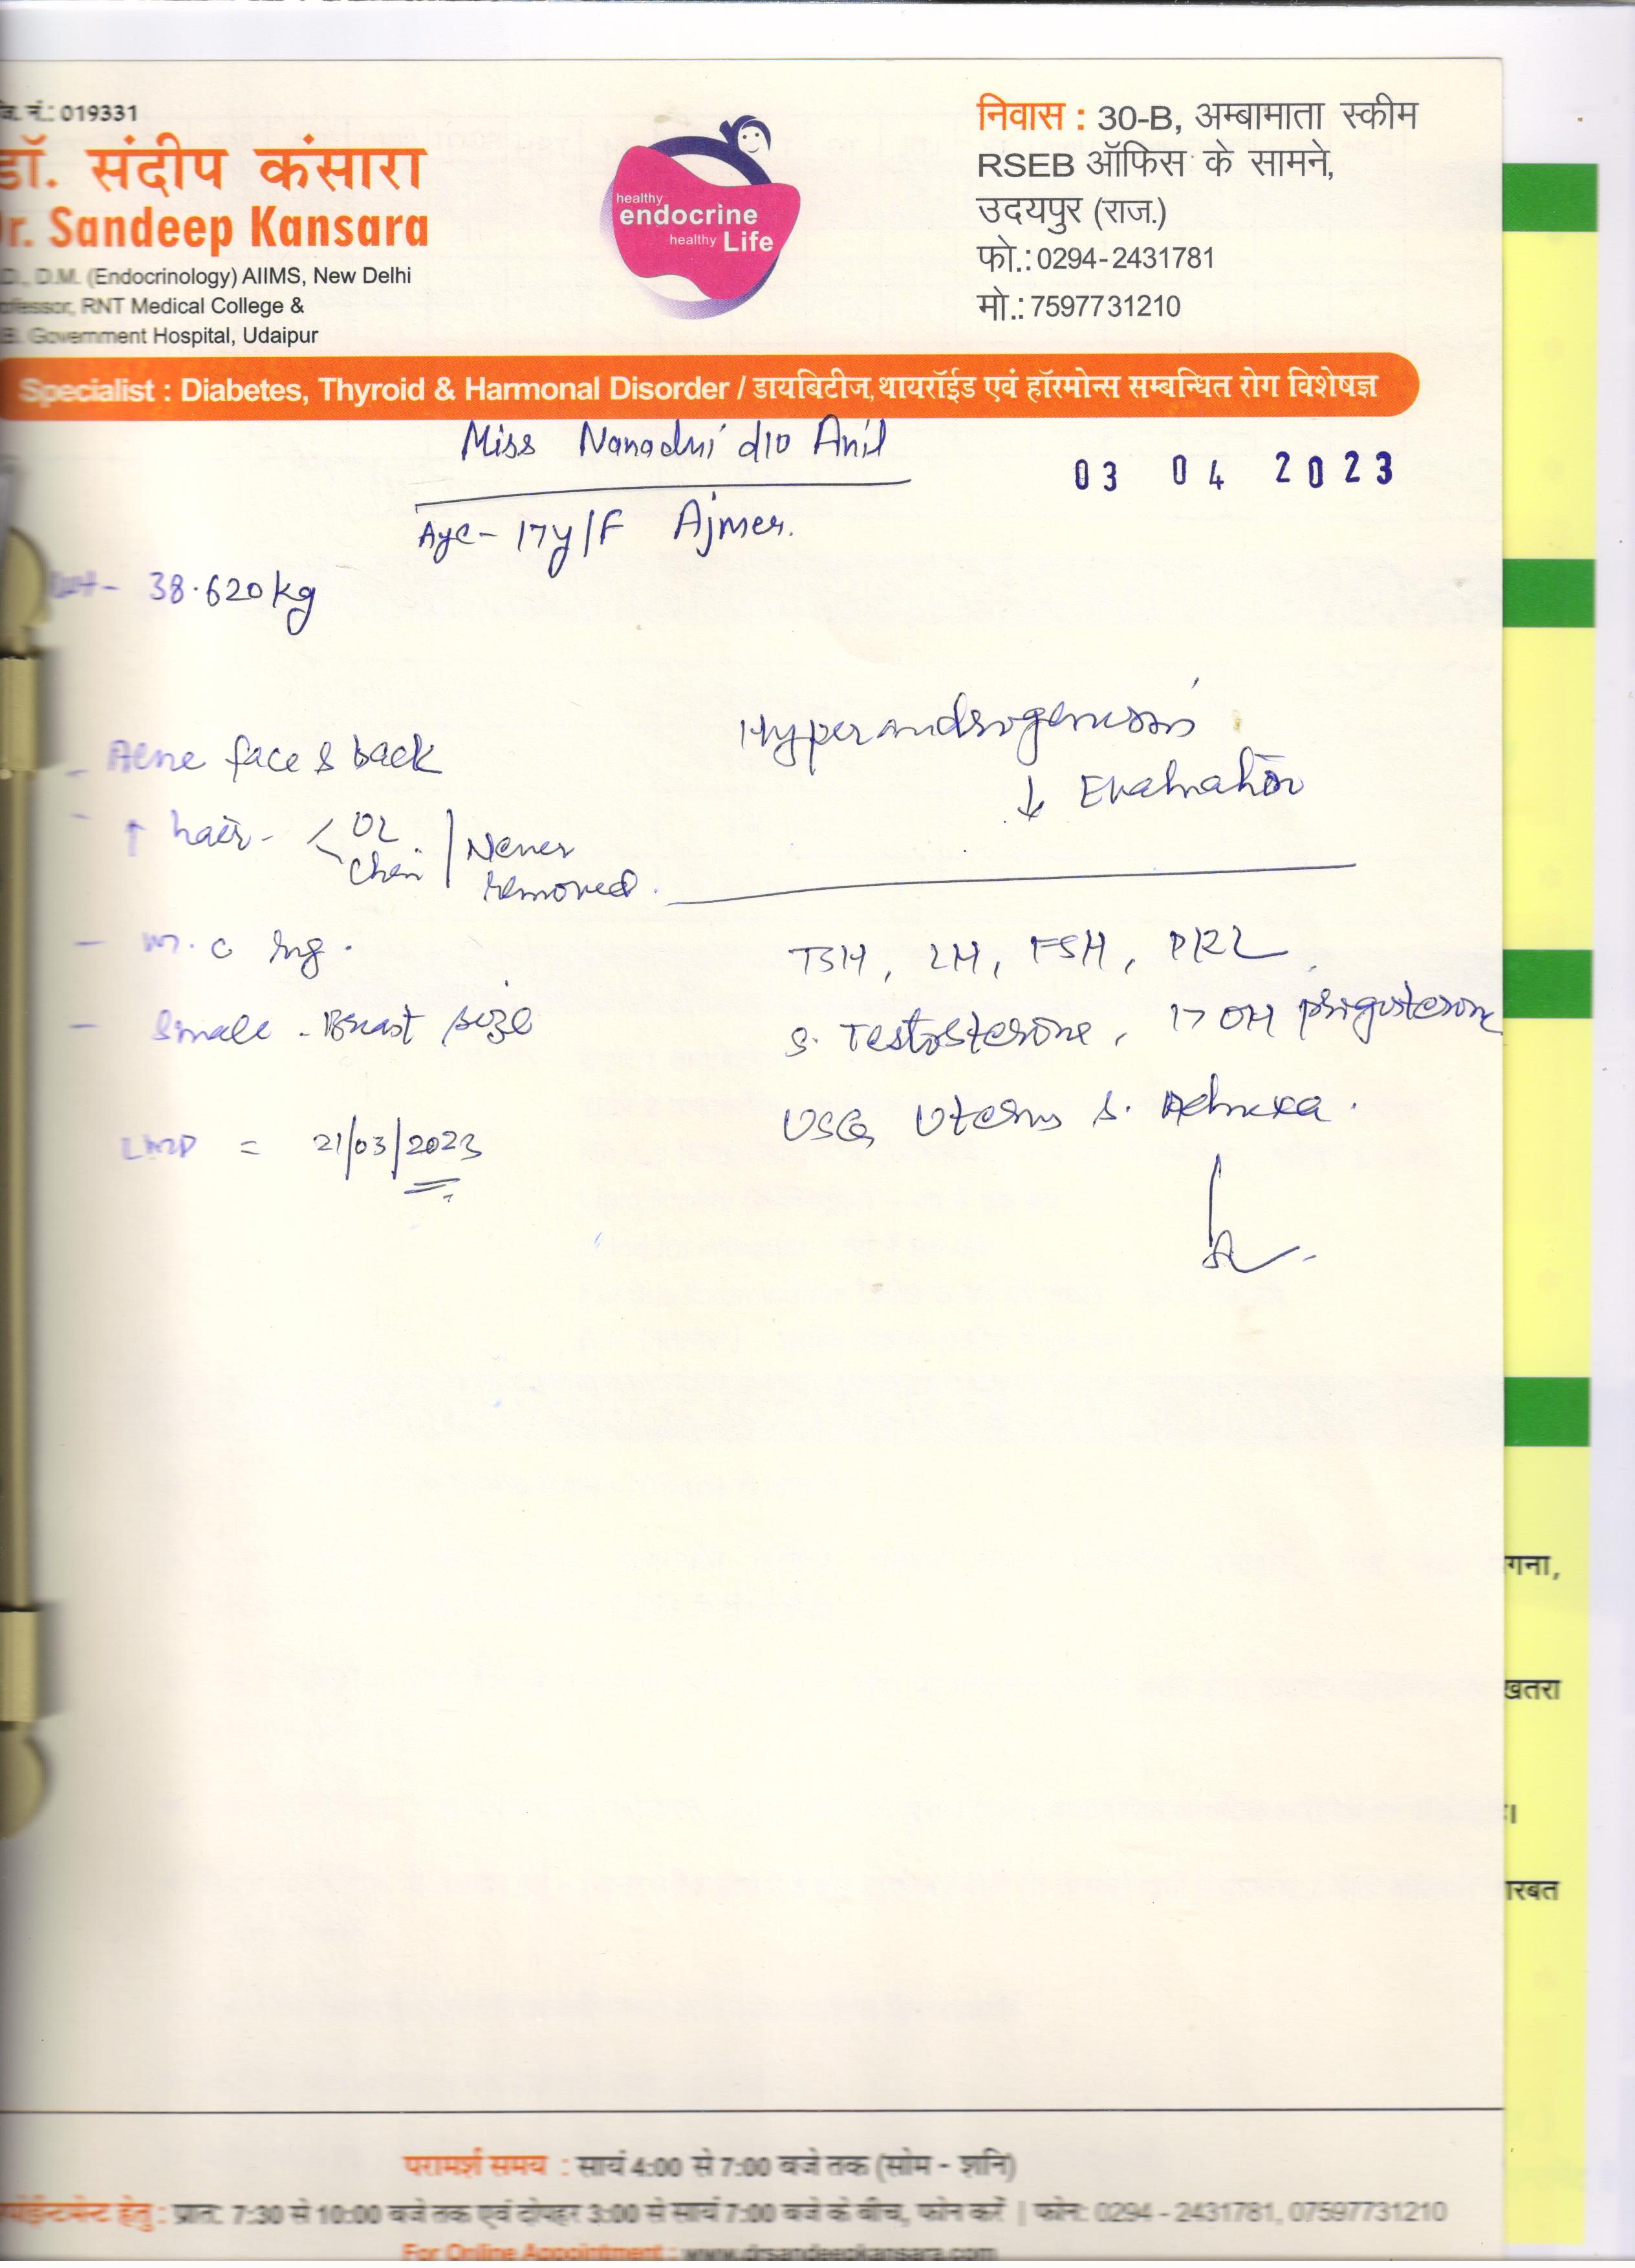 जि. नं.: 019331
डॉ. संदीप कंसारा
Dr. Sandeep Kansara
D., D.M. (Endocrinology) AIIMS, New Delhi
Professor, RNT Medical College &
Government Hospital, Udaipur
healthy
endocrine
healthy Life
निवास : 30-B, अम्बामाता स्कीम
RSEB ऑफिस के सामने,
उदयपुर (राज.)
फो.: 0294-2431781
मो.: 7597731210
Specialist : Diabetes, Thyroid & Harmonal Disorder / डायबिटीज, थायरॉईड एवं हॉरमोन्स सम्बन्धित रोग विशेषज्ञ
Miss d/o Anil
03 04 2023
Age - 17y/F Ajmer.
38.620 kg
- Acne face & back
- ↑ hair - < UL Chin | Never removed.
- m.c
- Small Breast size
LMP = 21/03/2023
Hyperandrogenism
↓ Evaluation
TSH, LH, FSH, PRL,
S. Testosterone, 17 OH progesterone
USG Uterus & Adnexa.
गना,
खतरा
रबत
परामर्श समय : सायं 4:00 से 7:00 बजे तक (सोम - शनि)
हेतु : प्रात: 7:30 से 10:00 बजे तक एवं दोपहर 3:00 से सायं 7:00 बजे के बीच, फोन करें | फोन: 0294 - 2431781, 07597731210
For Online Appointment : www.drsandeepkansara.com